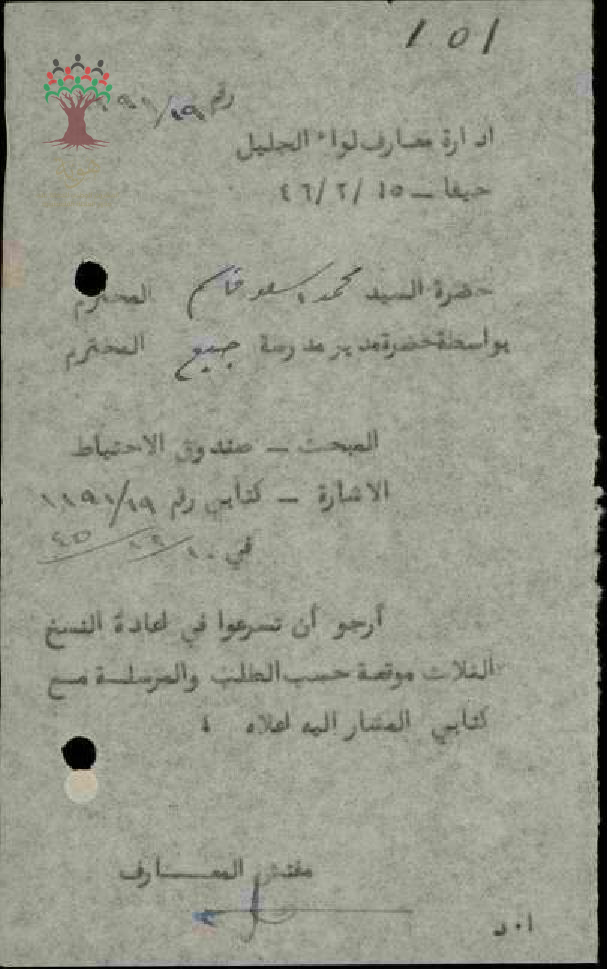 101
رقم ١١٩١/١٩
ادارة معارف لواء الجليل
حيفا – ١٥ /٢ /٤٦
حضرة السيد محمد اسعد المحترم
بواسطة حضرة مدير مدرسة جميع المحترم
المبحث – صندوق الاحتياط
الاشارة – كتابي رقم ١١٩١/١٩
في ١٠/١٢/٤٥
أرجو أن تسرعوا في اعادة النسخ
الثلاث موقعة حسب الطلب والمرسلة مع
كتابي المشار اليه اعلاه ،
مفتش المعــــارف
ا٠د